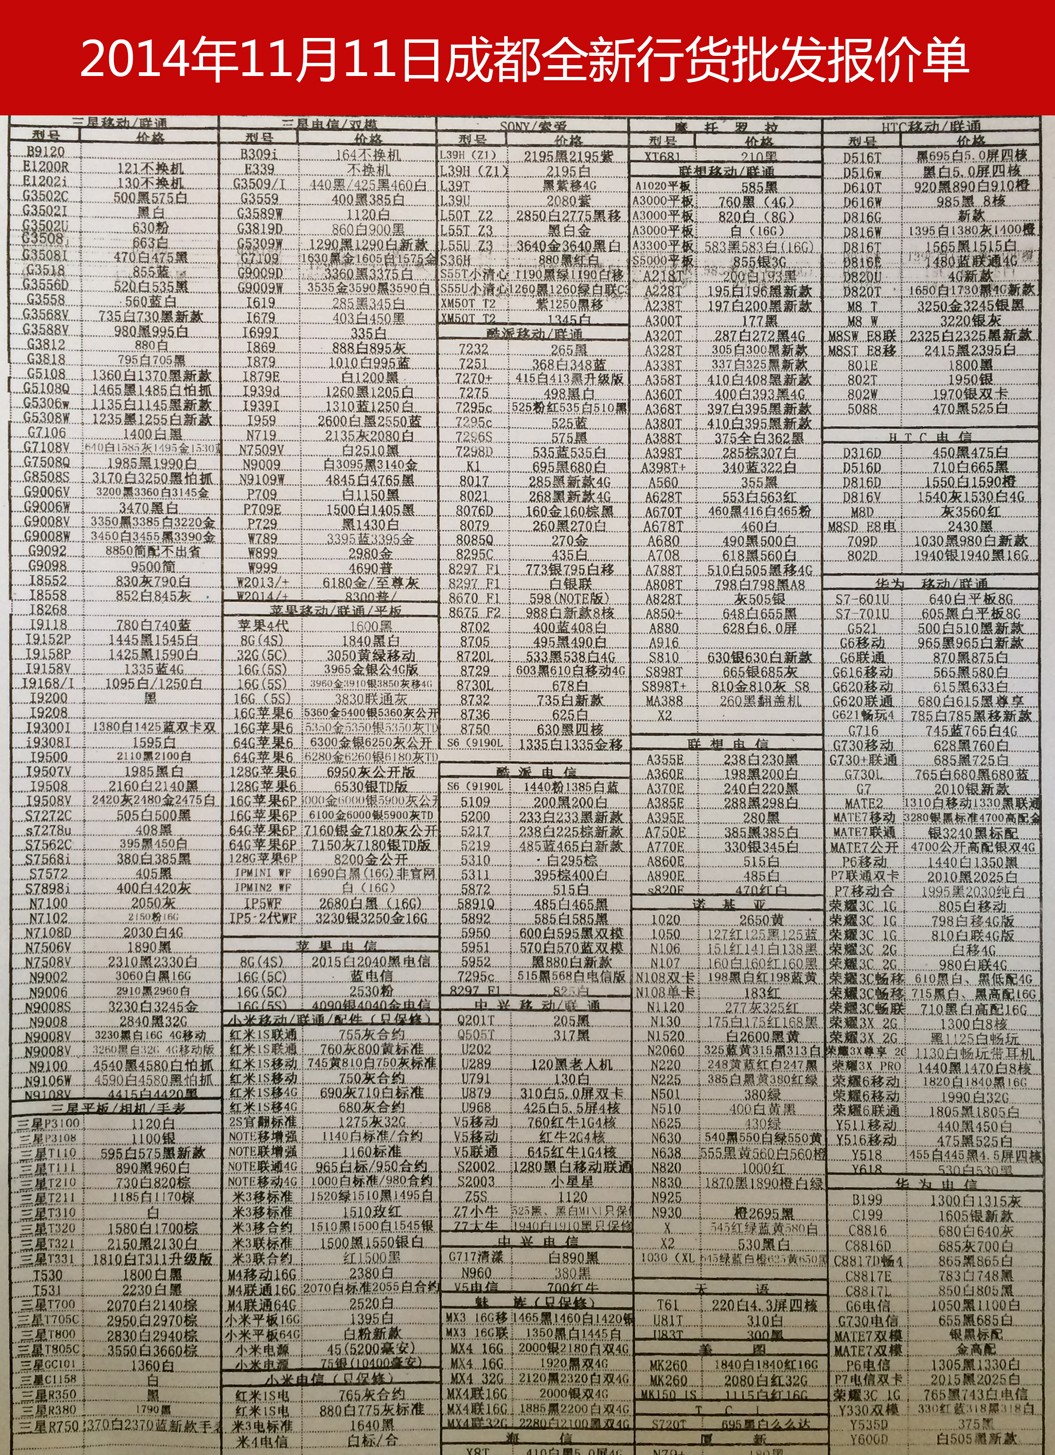 2014年11月11日成都全新行货批发报价单
三星移动/联通
型号 价格
B9120
E1200R 121不换机
E1202i 130不换机
G3502C 500黑575白
G3502I 黑白
G3502U 630粉
G3508 663白
G3508I 470白475黑
G3518 855蓝
G3556D 520白535黑
G3558 560蓝白
G3568V 735白730黑新款
G3588V 980黑995白
G3812 880白
G3818 795白705黑
G5108 1360白1370黑新款
G5108Q 1465黑1485白怕抓
G5306w 1135白1145黑新款
G5308W 1235黑1255白新款
G7106 1400白黑
G7108V
G7508Q 1985黑1990白
G8508S 3170白3250黑怕抓
G9006V 3200黑3360白3145金
G9006W 3470黑白
G9008V 3350黑3385白3220金
G9008W 3450白3455黑3390金
G9092 8850简配不出省
G9098 9500简
I8552 830灰790白
I8558 852白845灰
I8268
I9118 780白740蓝
I9152P 1445黑1545白
I9158P 1425黑1590白
I9158V 1335蓝4G
I9168/I 1095白/1250白
I9200 黑
I9208
I9300I 1380白1425蓝双卡双
I9308I 1595白
I9500 2110黑2100白
I9507V 1985黑白
I9508 2160白2140黑
I9508V 2420灰2480金2475白
S7272C 505白500黑
s7278u 408黑
S7562C 395黑450白
S7568i 380白385黑
S7572 405黑
S7898i 400白420灰
N7100 2050灰
N7102 2150粉16G
N7108D 2030白4G
N7506V 1890黑
N7508V 2310黑2330白
N9002 3060白黑16G
N9006 2910黑2960白
N9008S 3230白3245金
N9008 2840黑32G
N9008V 3230黑白16G 4G移动
N9008V 3260黑白32G 4G移动版
N9100 4540黑4580白怕抓
N9106W 4590白4580黑怕抓
N9108V 4415白4420黑
三星平板/相机/手表
三星P3100 1120白
三星P3108 1100银
三星T110 595白575黑新款
三星T111 890黑960白
三星T210 730白820棕
三星T211 1185白1170棕
三星T310 白
三星T320 1580白1700棕
三星T321 2150黑2130白
三星T331 1810白T311升级版
T530 1800白黑
T531 2230白黑
三星T700 2070白2140棕
三星T705C 2950白2970棕
三星T800 2830白2940棕
三星T805C 3550白3660棕
三星GC101 1360白
三星C1158 白
三星R350 黑
三星R380 1790黑
三星R750 2370白2370蓝新款手表
三星电信/双模
型号 价格
B309i 164不换机
E339 不换机
G3509/I 440黑/425黑460白
G3559 400黑385白
G3589W 1120白
G3819D 860白900黑
G5309W 1290黑1290白新款
G7109 1630黑金1605白1575金
G9009D 3360黑3375白
G9009W 3535金3590黑3590白
I619 285黑345白
I679 403白450黑
I699I 335白
I869 888白895灰
I879 1010白995蓝
I879E 白1200黑
I939d 1260黑1205白
I939I 1310蓝1250白
I959 2600白黑2550蓝
N719 2135灰2080白
N7509V 白2510黑
N9009 白3095黑3140金
N9109W 4845白4765黑
P709 白1150黑
P709E 1500白1405黑
P729 黑1430白
W789 3395蓝3395金
W899 2980金
W999 4690普
W2013/+ 6180金/至尊灰
W2014/+ 8300普/
苹果移动/联通/平板
苹果4代 1600黑
8G(4S) 1840黑白
32G(5C) 3050黄绿移动
16G(5S) 3965金银公4G版
16G(5S) 3960金3910银3850灰移4G
16G (5S) 3830联通灰
16G苹果6 5360金5400银5360灰公开
16G苹果6 5350金5350银5350灰TD
64G苹果6 6300金银6250灰公开
64G苹果6 6280金6260银6180灰TD
128G苹果6 6950灰公开版
128G苹果6 6530银TD版
16G苹果6P 6000金6000银5900灰公开
16G苹果6P 6100金6000银5900灰TD
64G苹果6P 7160银金7180灰公开
64G苹果6P 7150灰7180银TD版
128G苹果6P 8200金公开
IPMINI WF 1690白黑(16G)非官网
IPMIN2 WF 白 (16G)
IP5WF 2680白黑 (16G)
IP5·2代WF 3230银3250金16G
苹果电信
8G(4S) 2015白2040黑电信
16G(5C) 蓝电信
16G(5C) 2530粉
16G(5S) 4090银4040金电信
小米移动/联通/配件(只保修)
红米1S联通 755灰合约
红米1S联通 760灰800黄标准
红米1S移动 745黄810白750灰标准
红米1S移动 750灰合约
红米1S移4G 690灰710白标准
红米1S移4G 680灰合约
2S官翻标准 1275灰32G
NOTE移增强 1140白标准/合约
NOTE联增强 1160标准
NOTE联通4G 965白标/950合约
NOTE移动4G 1000白标准/980合约
米3移标准 1520绿1510黑1495白
米3移标准 1510玫红
米3移合约 1510黑1500白1545银
米3联标准 1500黑1550银白
米3联合约 红1500黑
M4移动16G 2380白
M4联通16G 2070白标准2055白合约
M4联通64G 2520白
小米平板16G 1395白
小米平板64G 白粉新款
小米电源 45(5200毫安)
小米电源 75银(10400毫安)
小米电信(只保修)
红米1S电 765灰合约
红米1S电 880白775灰标准
米3电标准 1640黑
米4电信 白标/合
SONY/索爱
型号 价格
L39H (Z1) 2195黑2195紫
L39H (Z1) 2195白
L39T 黑紫移4G
L39U 2080紫
L50T Z2 2850白2775黑移
L55T Z3 黑白金
L55U Z3 3640金3640黑白
S36H 880黑红白
S55T小清心 1190黑绿1190白移
S55U小清心 1260黑1260绿白联C3
XM50T T2 紫1250黑移
XM50T T2 1345白
酷派移动/联通
7232 265黑
7251 368白348蓝
7270+ 415白413黑升级版
7275 498黑白
7295c 525粉红535白510黑
7295c 525蓝
7296S 575黑
7298D 535蓝535白
K1 695黑680白
8017 285黑新款4G
8021 268黑新款4G
8076D 160金160棕黑
8079 260黑270白
8085Q 270金
8295C 435白
8297 F1 773银795白移
8297 F1 白银联
8670 F1 598(NOTE版)
8675 F2 988白新款8核
8702 400蓝408白
8705 495黑490白
8720L 533黑538白4G
8729 603黑610白移动4G
8730L 678白
8732 735白新款
8736 625白
8750 630黑四核
S6 (9190L 1335白1335金移
酷派电信
S6 (9190L 1440粉1385白蓝
5109 200黑200白
5200 233白233黑新款
5217 238白225棕新款
5219 485蓝465白新款
5310 白295棕
5311 395棕400白
5872 515白
5891Q 485白465黑
5892 585白585黑
5950 600白595黑双模
5951 570白570蓝双模
5952 黑880白新款
7295c 515黑568白电信版
8297 F1 825白
中兴移动/联通
Q201T 205黑
Q505T 317黑
U202
U289 120黑老人机
U791 130白
U879 310白5.0屏双卡
U968 425白5.5屏4核
V5移动 760红牛1G4核
V5移动 红牛2G4核
V5联通 645红牛1G4核
S2002 1280黑白移动联通
S2003 小星星
Z5S 1120
Z7小牛 525黑、黑白MINI只保修
Z7大牛 1940白1910黑只保修
中兴电信
G717清漾 白890黑
N960 380黑
V5电信 700红牛
魅 族(只保修)
MX3 16G移 1465黑1460白1420银
MX3 16G联 1350黑白1445白
MX4 16G 2000银2180白双4G
MX4 16G 1920黑双4G
MX4 32G 2120黑2320白双4G
MX4联16G 2000银双4G
MX4联16G 1885黑2200白双4G
MX4联32G 2280白2100黑双4G
海 信
X8T 410白黑5.0屏4G
摩托罗拉
XT681 210黑
联想移动/联通
A1020平板 585黑
A3000平板 760黑 (4G)
A3000平板 820白 (8G)
A3000平板 白 (16G)
A3300平板 583黑583白(16G)
S5000平板 855银3G
A218T 200白193黑
A228T 195白196黑新款
A238T 197白200黑新款
A300T 177黑
A320T 287白272黑4G
A328T 305白300黑新款
A338T 337白325黑新款
A358T 410白408黑新款
A360T 400白393黑4G
A368T 397白395黑新款
A380T 410白395黑新款
A388T 375全白362黑
A398T 285棕307白
A398T+ 340蓝322白
A560 355黑
A628T 553白563红
A670T 460黑416白465粉
A678T 460白
A680 490黑500白
A708 618黑560白
A788T 510白505黑移4G
A808T 798白798黑A8
A828T 灰505银
A850+ 648白655黑
A880 628白6.0屏
A916
S810 630银630白新款
S898T 665银685灰
S898T+ 810金810灰 S8
MA388 260黑翻盖机
X2
联想电信
A355E 238白230黑
A360E 198黑200白
A370E 240白220黑
A385E 288黑298白
A395E 280黑
A750E 385黑385白
A770E 330银345白
A860E 515白
A890E 485白
s820E 470红白
诺基亚
1020 2650黄
1050 127红125黑125蓝
N106 151红141白138黑
N107 160白160红160黑
N108双卡 198黑白红198蓝黄
N108单卡 183红
N1120 277灰325红
N130 175白175红168黑
N1520 白2600黑黄
N2060 325蓝黄315黑313白
N220 248黄蓝红白247黑
N225 385白黑黄380红绿
N501 380绿
N510 400白黄黑
N625 430绿
N630 540黑550白绿550黄
N638 555黑黄560白560橙
N820 1000红
N830 1870黑1890橙白绿
N925
N930 橙2695黑
X 545红绿蓝黄580白
X2 530黑白
1030 (XL
天 语
T61 220白4.3屏四核
U81T 310白
U83T 300黑
美 图
MK260 1840白1840红16G
MK260 2080白红32G
MK150 1S 1115白红16G
T C L
S720T 695黑白么么达
厦 新
HTC移动/联通
型号 价格
D516T 黑695白5.0屏四核
D516w 黑白5.0屏四核
D610T 920黑890白910橙
D616W 985黑 8核
D816G 新款
D816W 1395白1380灰1400橙
D816T 1565黑1515白
D816E 1480蓝联通4G
D820U 4G新款
D820T 1650白1730黑4G新款
M8 T 3250金3245银黑
M8 W 3220银灰
M8SW E8联 2325白2325黑新款
M8ST E8移 2415黑2395白
801E 1800黑
802T 1950银
802W 1970银双卡
5088 470黑525白
HTC电信
D316D 450黑475白
D516D 710白665黑
D816D 1550白1590橙
D816V 1540灰1530白4G
M8D 灰3560红
M8SD E8电 2430黑
709D 1030黑980白新款
802D 1940银1940黑16G
华为 移动/联通
S7-601U 640白平板8G
S7-701U 605黑白平板8G
G521 500白510黑新款
G6移动 965黑965白新款
G6联通 870黑875白
G616移动 565黑580白
G620移动 615黑633白
G620联通 680白615黑尊享
G621畅玩4 785白785黑移新款
G716 745蓝765白4G
G730移动 628黑760白
G730+联通 685黑725白
G730L 765白680黑680蓝
G7 2010银新款
MATE2 1310白移动1330黑联通
MATE7移动 3280银黑标准4700高配金
MATE7联通 银3240黑标配
MATE7公开 4700公开高配银双4G
P6移动 1440白1350黑
P7联通双卡 2010黑2025白
P7移动合 1995黑2030纯白
荣耀3C 1G 805白移动
荣耀3C 1G 798白移4G版
荣耀3C 1G 810白联4G版
荣耀3C 2G 白移4G
荣耀3C 2G 980白联4G
荣耀3C畅移 610黑白、黑低配4G
荣耀3C畅移 715黑白、黑高配16G
荣耀3C畅联 710黑白高配16G
荣耀3X 2G 1300白8核
荣耀3X 2G 黑1125白畅玩
荣耀3X尊享 2G 1130白畅玩带耳机
荣耀3X PRO 1440黑1470白8核
荣耀6移动 1820白1840黑16G
荣耀6移动 1990白32G
荣耀6联通 1805黑1805白
Y511移动 440黑450白
Y516移动 475黑525白
Y518 455白445黑4.5屏四核
Y618 530白530黑
华为电信
B199 1300白1315灰
C199 1605银新款
C8816 680白640灰
C8816D 685灰700白
C8817D畅4 865黑865白
C8817E 783白748黑
C8817L 850白805黑
G6电信 1050黑1100白
G730电信 655黑685白
MATE7双模 银黑标配
MATE7双模 金高配
P6电信 1305黑1330白
P7电信双卡 2015黑2025白
荣耀3C 1G 765黑743白电信
Y330双模 330红蓝318黑318白
Y535D 375黑
Y600D 白505黑新款